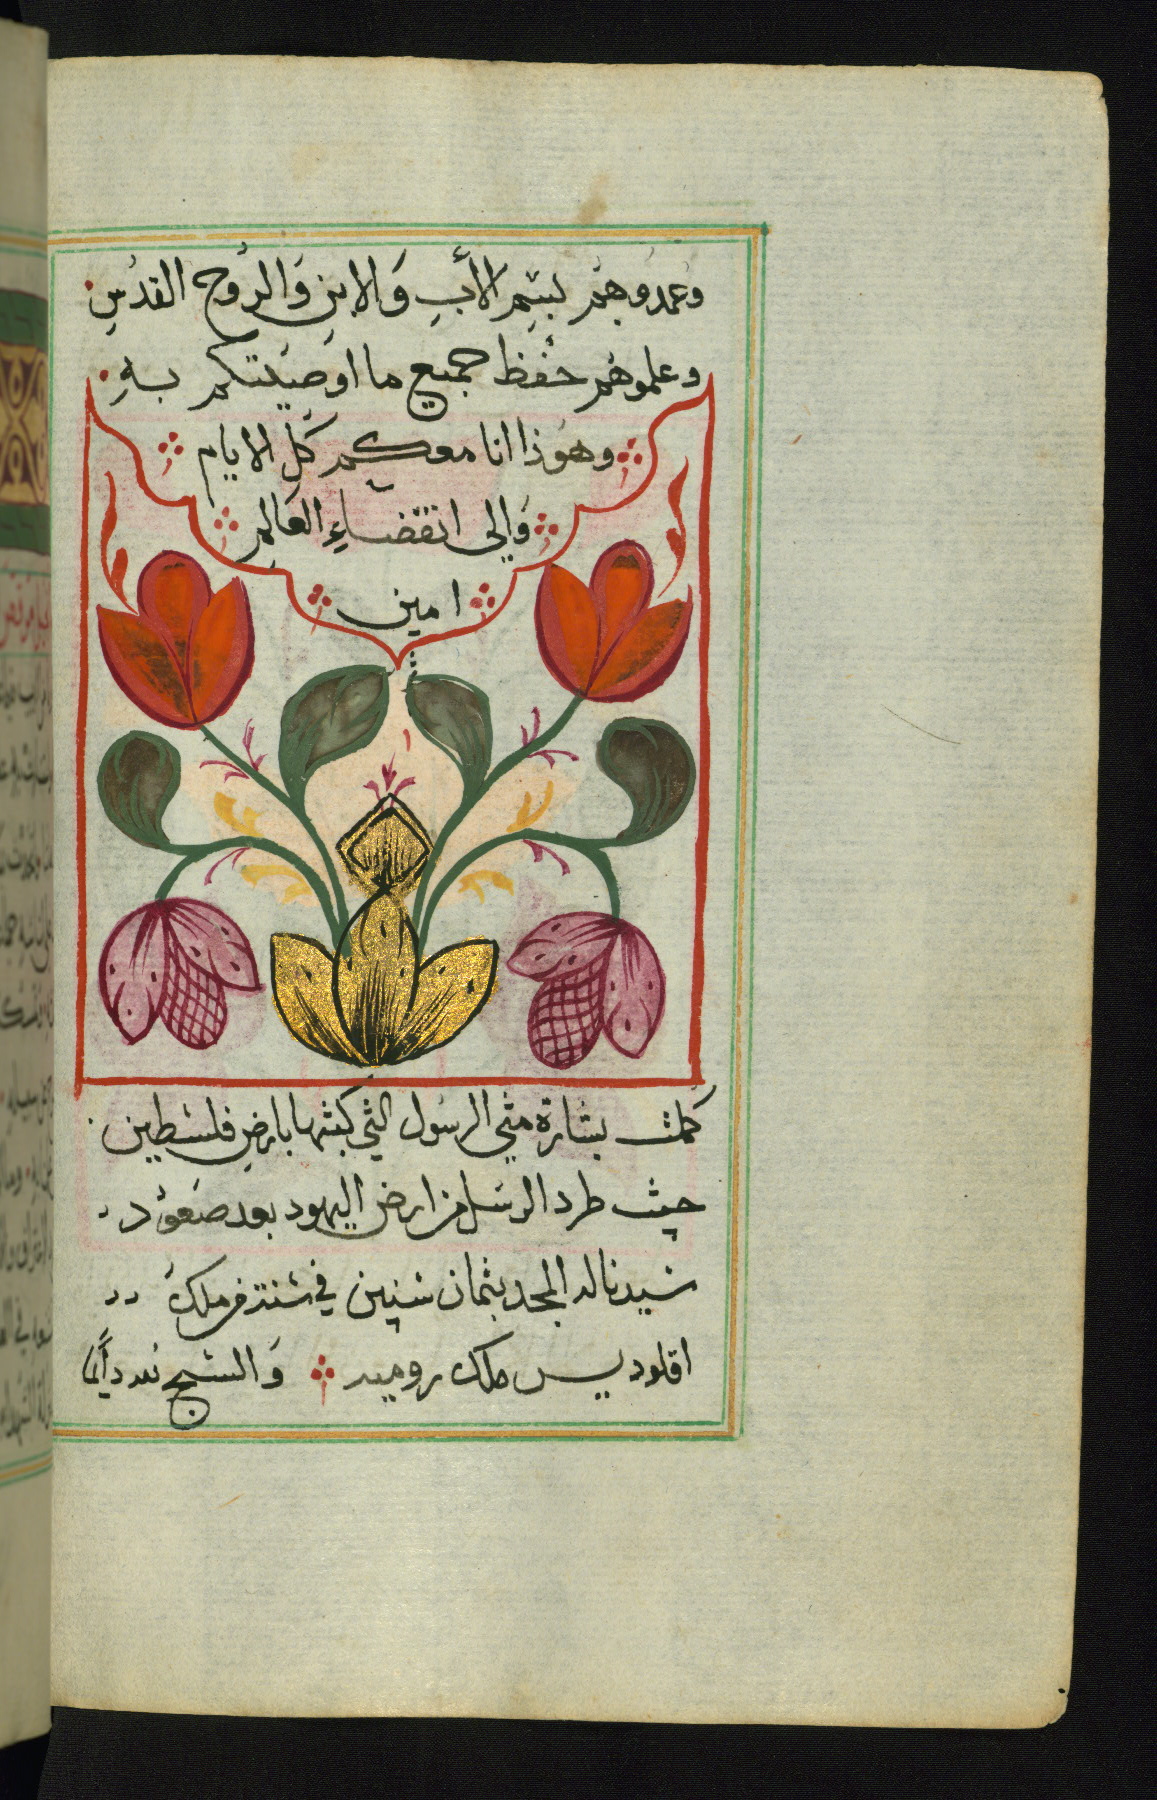 وعمدوهم بسم الأب والابن والروح القدس
وعلموهم حفظ جميع ما اوصيتكم به
وهوذا انا معكم كل الايام
والى انقضاء العالم
امين
كملت بشارة متى الرسول التي كتبها بارض فلسطين
حيث طرد الرسل من ارض اليهود بعد صعود
سيدنا له المجد بثمان سنين في سنة من ملك
اقلوديس ملك رومية والسبح لله دايما